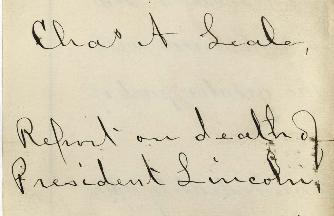 Chas A Leale,
Report on death of
President Lincoln,